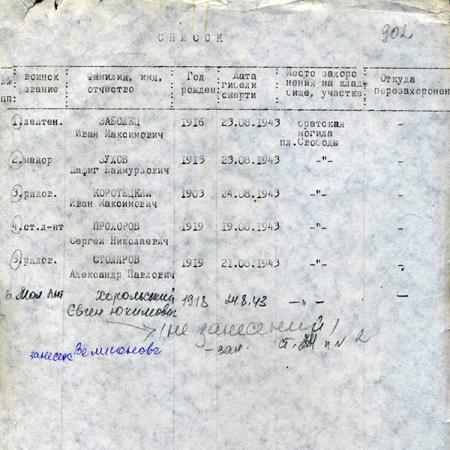 302
СПИСОК
№№ пп: воинск звание Фамилия, имя, отчество Год рожден. Дата гибели смерти Место захоро нения на клад бище, участке Откуда перезахоронен
1. лейтен. ЗАБОЛЕЦ Иван Максимович 1916 23.08.1943 братская могила пл.Свободы -
2. майор Ваймурзович 1915 23.08.1943 -"- -
3. рядов. КОРОТЕЦКИЙ Иван Максимович 1903 24.08.1943 -"- -
4. ст.л-нт ПРОХОРОВ Сергей Николаевич 1919 19.08.1943 -"- -
5. рядов. СТОЛЯРОВ Александр Павлович 1919 21.08.1943 -"- -
6. Мол. лнт Хорольский Євген Юхимович 1918 -"- -
(не занесений)
- зан. 2